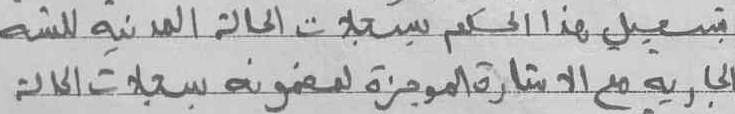 بتسجيل هذا الحكم بسجلات الحالة المدنية للسنة
الجارية مع الاشارة الموجزة لمضمونه بسجلات الحالة